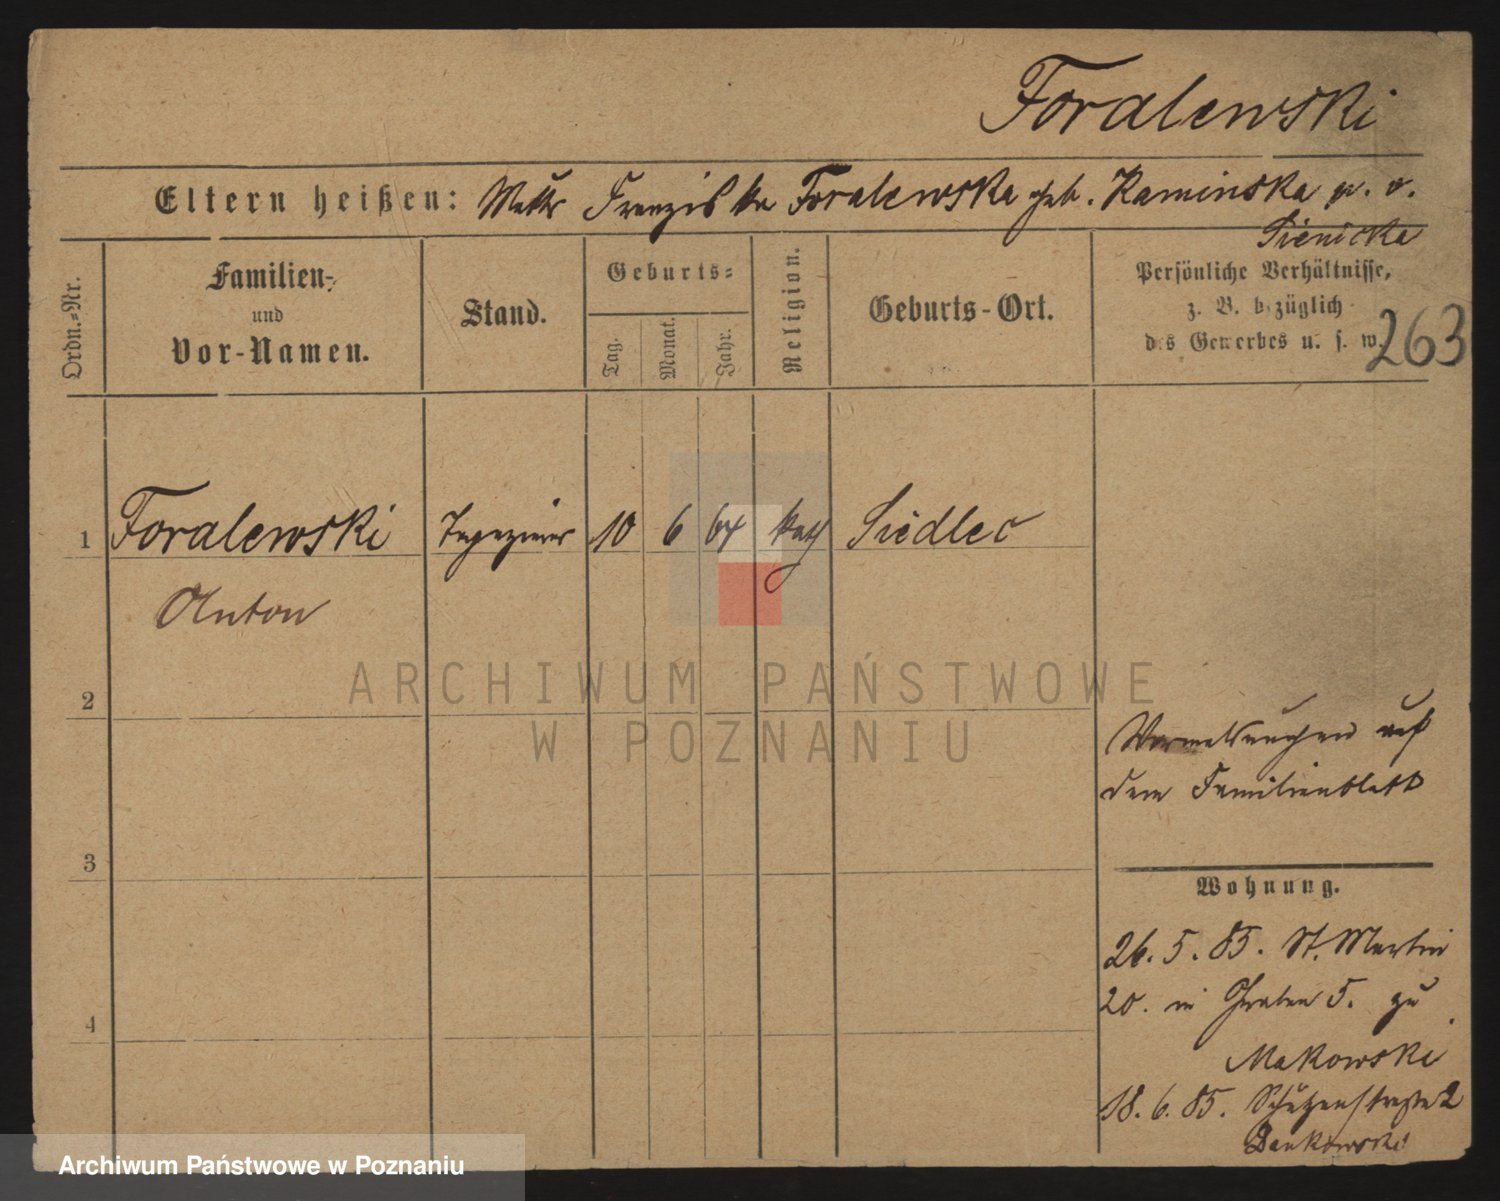 Foralewski
Eltern heißen: Mutter Franziska Foralewska geb. Kaminska p. v.
Sienicka
Ordn.=Nr.
Familien-
und
Vor-Namen.
Stand.
Geburts=
Tag.
Monat.
Jahr.
Religion.
Geburts-Ort.
Persönliche Verhältnisse,
z. B. bezüglich
des Gewerbes u. s. w.
263
1 Foralewski 10 6 64 kath Siedlec
Anton
2
ARCHIWUM PAŃSTWOWE
W POZNANIU
auf
dem Familienblatt
3
Wohnung.
26. 5. 85. St. Martin
20. in Graben 5. zu
4
Makowski
18. 6. 85. Schützenstraße 2
Dankowski
Archiwum Państwowe w Poznaniu